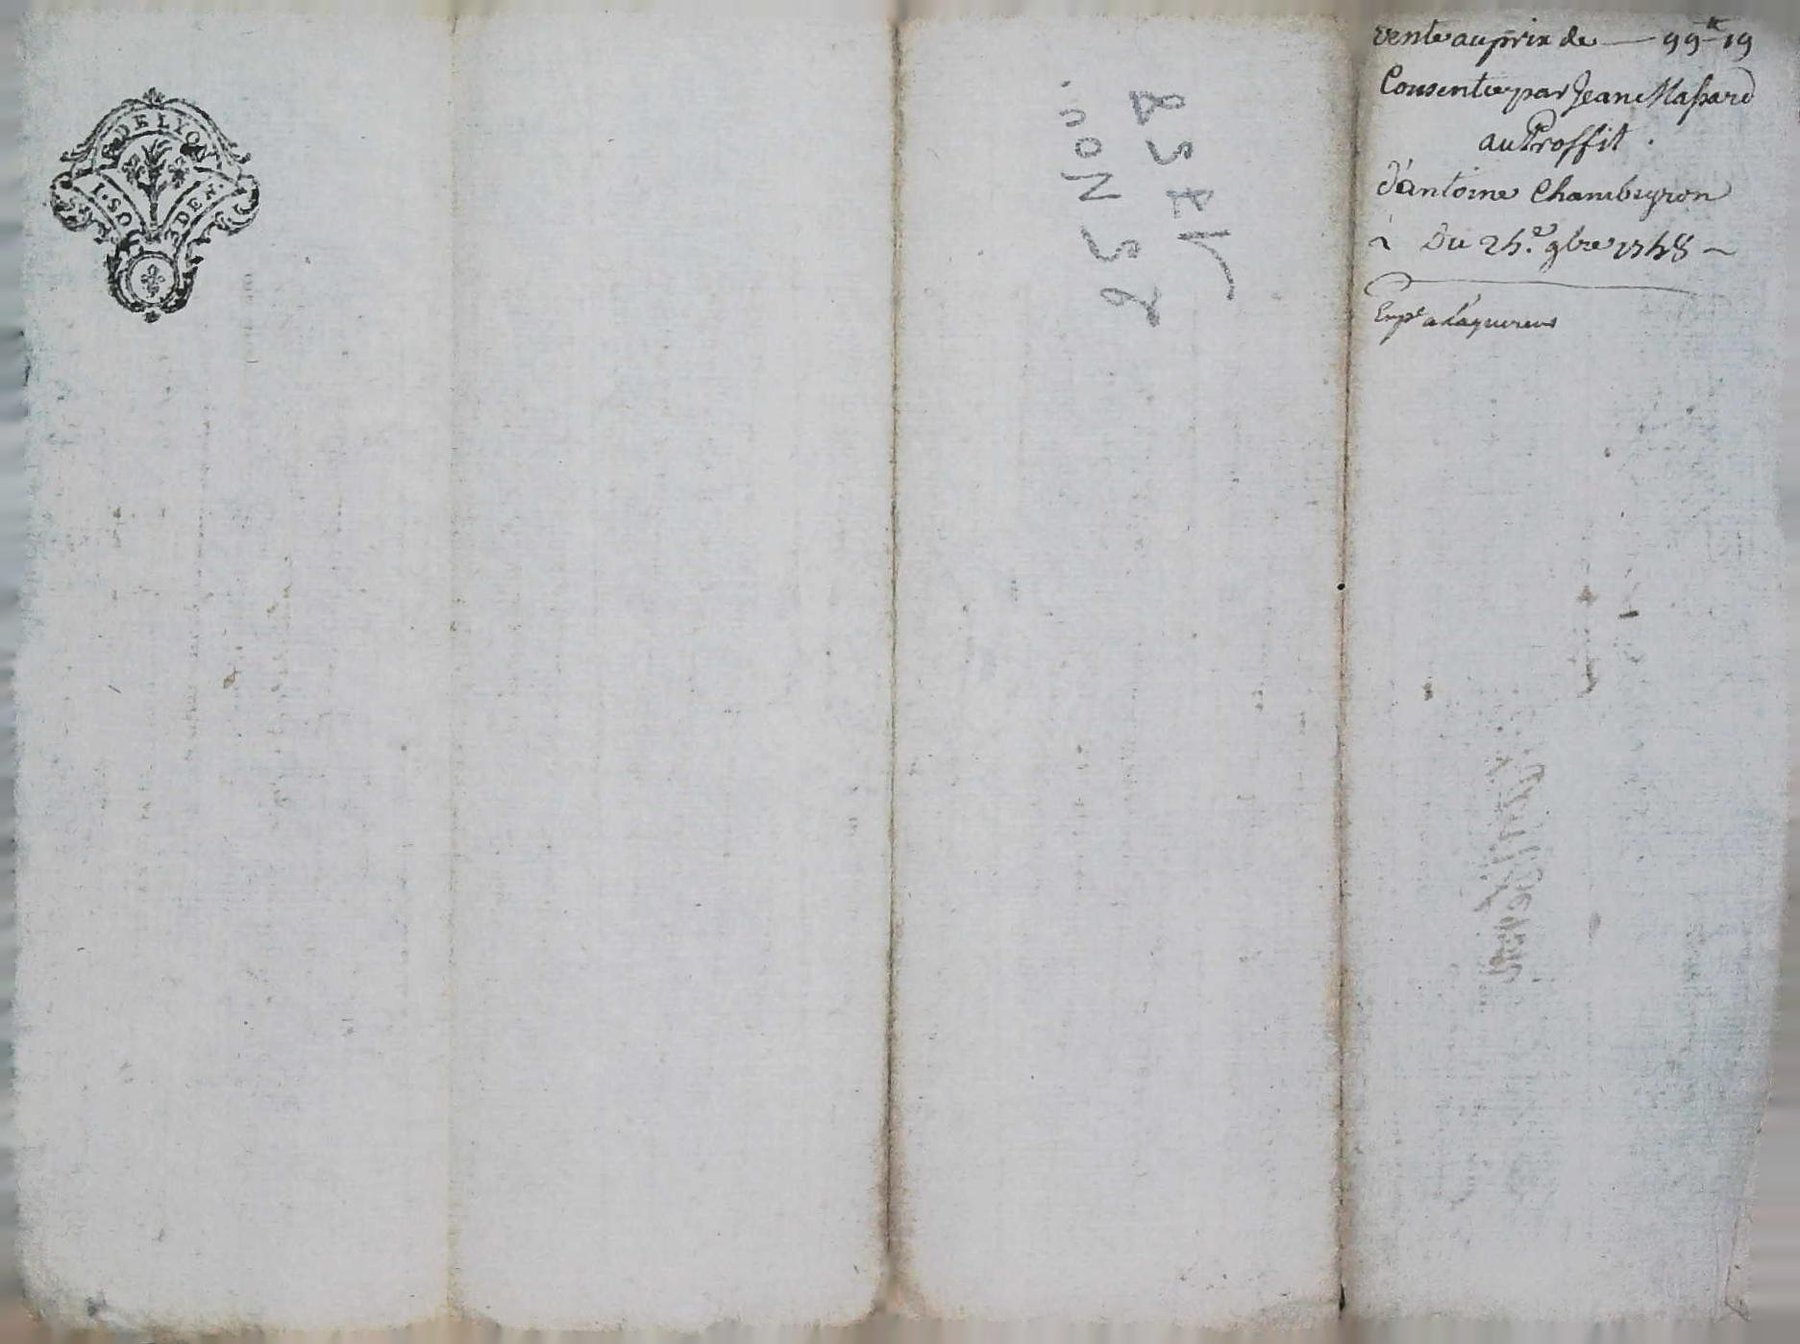 DE LYON
I. SO 3 DEN.
25 Nov.
1758
vente au prix de — 99 ₶ 19
Consentie par Jean Massard
au Proffit
d'antoine Chambeyron
Du 25.e 9bre 1758